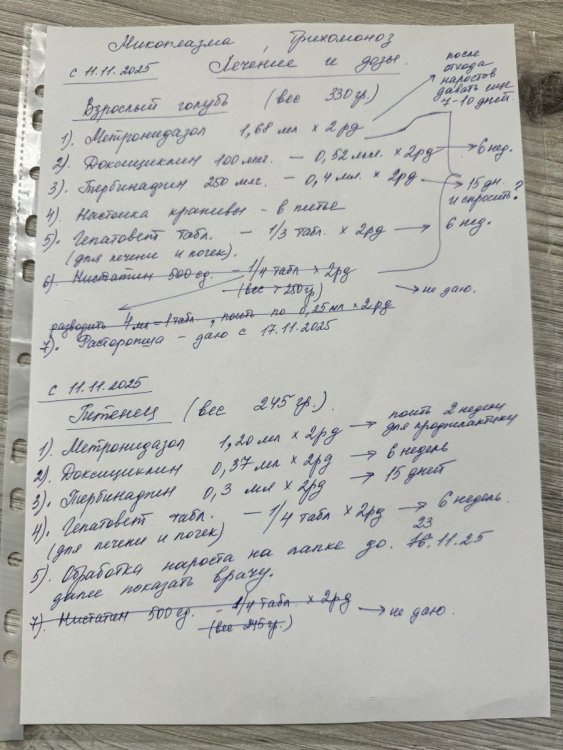 Микоплазма, Трихомоноз
с 11.11.2025 Лечение и дозы.
Взрослый голубь (вес 330 гр.)
после отхода наростов давать еще 7-10 дней.
1). Метронидазол 1,68 мл × 2 рд
2). Доксициклин 100 млг. – 0,52 мл. × 2 рд → 6 нед.
3). Тербинафин 250 млг. – 0,4 мл. × 2 рд → 15 дн. и спросить?
4) Настойка крапивы – в питье
5). Гепатовет табл. – 1/3 табл. × 2 рд → 6 нед.
(для печени и почек).
6) Нистатин 500 ед. – 1/4 табл × 2 рд
(вес > 250 гр) → не даю.
разводить 4 мл = 1 табл, поить по 0,25 мл × 2 рд
7). Расторопша – даю с 17.11.2025
с 11.11.2025
Птенец (вес 245 гр.)
1) Метронидазол 1,20 мл × 2 рд → поить 2 недели для профилактики
2) Доксициклин 0,37 мл × 2 рд → 6 недель
3). Тербинафин 0,3 мл × 2 рд → 15 дней
4). Гепатовет табл. – 1/4 табл × 2 рд → 6 недель.
(для печени и почек)
23
5). Обработка нароста на лапке до 16.11.25
далее показать врачу.
7). Нистатин 500 ед. – 1/4 табл. × 2 рд → не даю.
(вес 245 гр.)